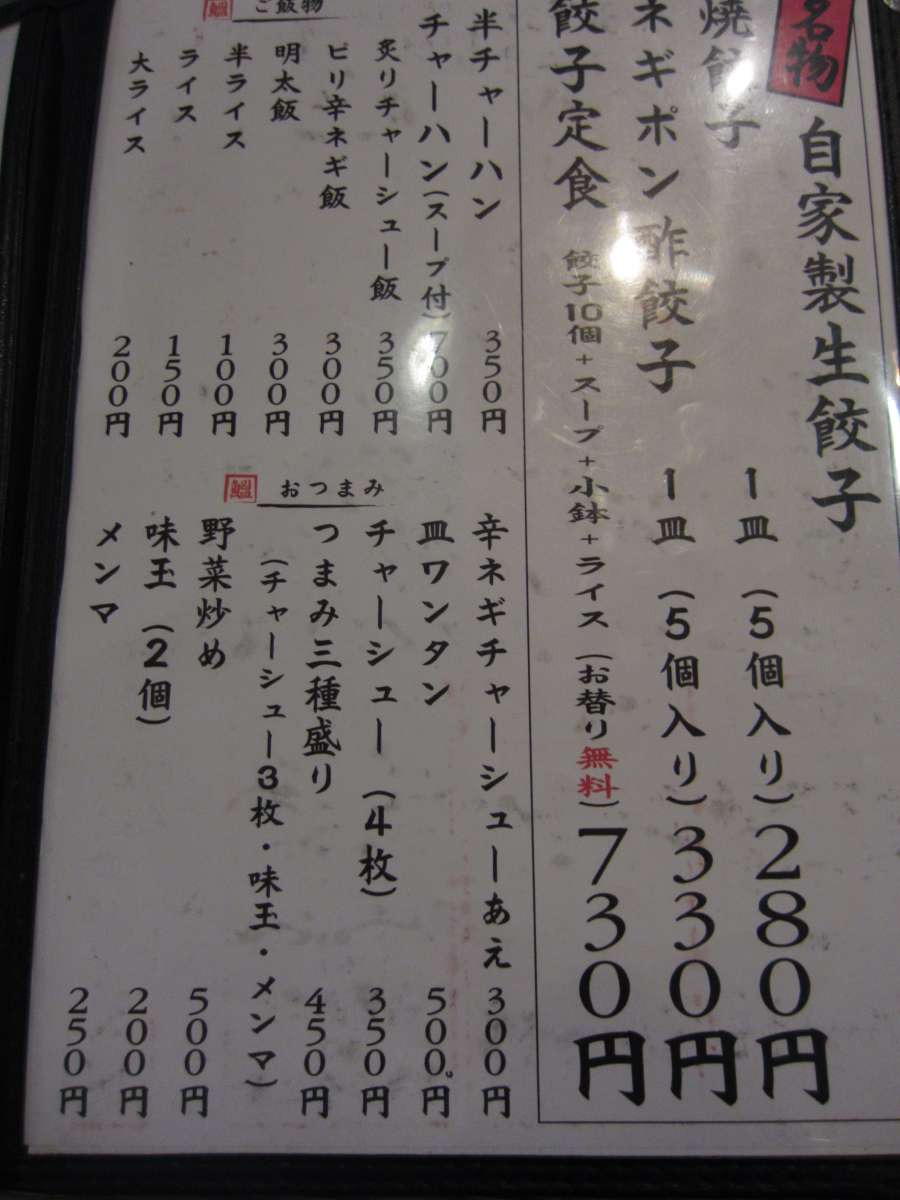 名物
自家製生餃子
焼餃子 1皿(5個入り)280円
ネギポン酢餃子 1皿(5個入り)330円
餃子定食 餃子10個+スープ+小鉢+ライス(お替り無料)730円
ご飯物
半チャーハン 350円
チャーハン(スープ付)700円
炙りチャーシュー飯 350円
ピリ辛ネギ飯 300円
明太飯 300円
半ライス 100円
ライス 150円
大ライス 200円
おつまみ
辛ネギチャーシューあえ 300円
皿ワンタン 500円
チャーシュー(4枚) 350円
つまみ三種盛り 450円
(チャーシュー3枚・味玉・メンマ)
野菜炒め 500円
味玉(2個) 200円
メンマ 250円